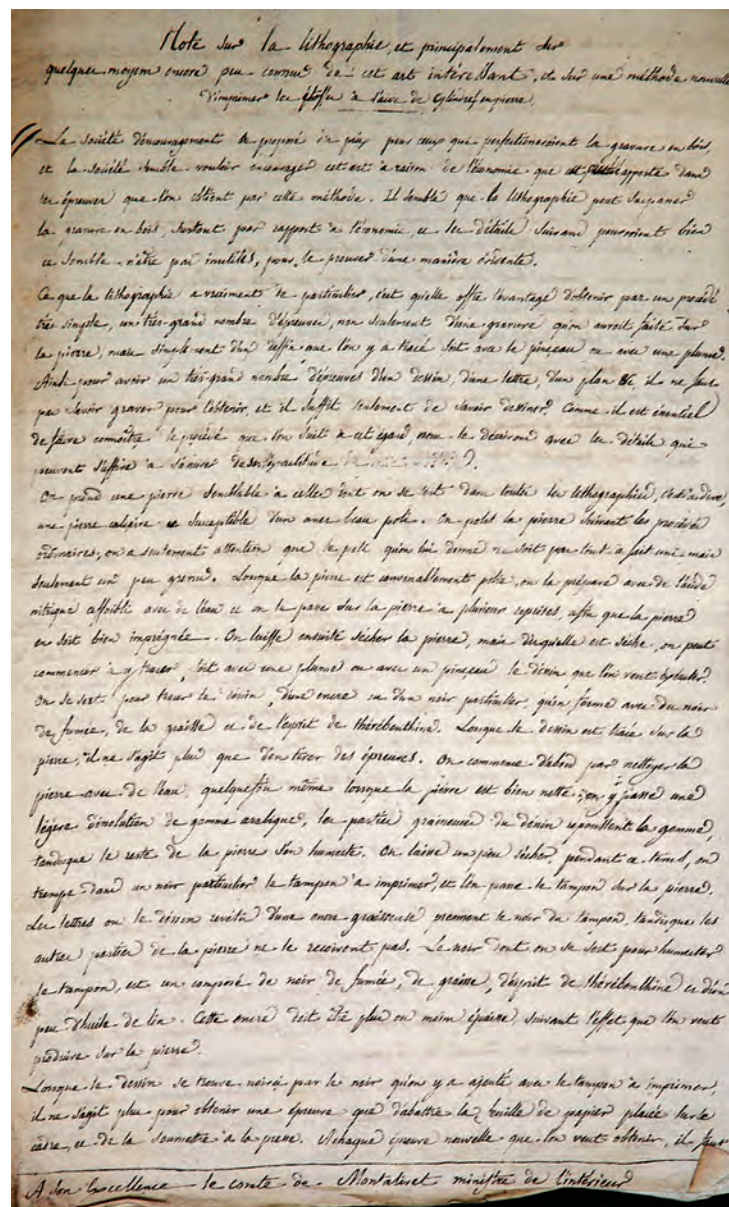 Note sur la lithographie, et principalement sur
quelques moyens encore peu connus de cet art intéressant, et sur une méthode nouvelle
d'imprimer les étoffes à l'aide de Cylindres en pierre.
La Société d'encouragement a proposé un prix pour ceux qui perfectionneroient la gravure en bois,
et la société semble vouloir encourager cet art à raison de l'économie que apporte dans
les épreuves que l'on obtient par cette méthode. Il semble que la lithographie peut surpasser
la gravure en bois, surtout par rapport à l'économie, et les détails suivans pourroient bien
ce semble n'être pas inutiles, pour le prouver d'une manière évidente.
Ce que la lithographie a vraiment de particulier, c'est qu'elle offre l'avantage d'obtenir par un procédé
très simple, un très-grand nombre d'épreuves, non seulement d'une gravure qu'on auroit faite sur
la pierre, mais simplement d'un dessin que l'on y a tracé soit avec le pinceau ou avec une plume.
Ainsi pour avoir un très-grand nombre d'épreuves d'un dessin, d'une lettre, d'un plan &c, il ne faut
pas savoir graver pour l'obtenir, et il suffit seulement de savoir dessiner. Comme il est essentiel
de faire connoître le procédé que l'on suit à cet égard, nous le décrirons avec les détails qui
peuvent suffire à s'assurer
On prend une pierre semblable à celles dont on se sert dans toutes les lithographies, c'est-à-dire,
une pierre calcaire et susceptible d'un assez beau poli. On polit la pierre suivant les procédés
ordinaires, on a seulement attention que le poli qu'on lui donne ne soit pas tout à fait uni mais
seulement un peu grenu. Lorsque la pierre est convenablement polie, on la prépare avec de l'acide
nitrique affoibli avec de l'eau et on le passe sur la pierre à plusieurs reprises, afin que la pierre
en soit bien imprégnée. On laisse ensuite sécher la pierre, mais dès qu'elle est sèche, on peut
commencer à y tracer, soit avec une plume ou avec un pinceau le dessin que l'on veut exécuter.
On se sert, pour tracer le dessin, d'une encre ou d'un noir particulier, qu'on forme avec du noir
de fumée, de la graisse et de l'esprit de thérébenthine. Lorsque le dessin est tracé sur la
pierre, il ne s'agit plus que d'en tirer des épreuves. On commence d'abord par nettoyer la
pierre avec de l'eau, quelquefois même lorsque la pierre est bien nette, on y passe une
légère dissolution de gomme arabique, les parties graisseuses du dessin repoussent la gomme,
tandis que le reste de la pierre s'en humecte. On laisse un peu sécher, pendant ce tems, on
trempe dans un noir particulier le tampon à imprimer, et l'on passe le tampon sur la pierre.
Les lettres ou le dessin revêtu d'une encre graisseuse prennent le noir du tampon, tandis que les
autres parties de la pierre ne le reçoivent pas. Le noir dont on se sert pour humecter
le tampon, est un composé de noir de fumée, de graisse, d'esprit de thérébenthine et d'un
peu d'huile de lin. Cette encre doit être plus ou moins épaisse, suivant l'effet que l'on veut
produire sur la pierre.
Lorsque le dessin se trouve noirci par le noir qu'on y a ajouté avec le tampon à imprimer,
il ne s'agit plus pour obtenir une épreuve que d'abattre la feuille de papier placée sur le
cadre, et de la soumettre à la presse. A chaque épreuve nouvelle que l'on veut obtenir, il faut
A son Excellence le comte de Montalivet ministre de l'intérieur